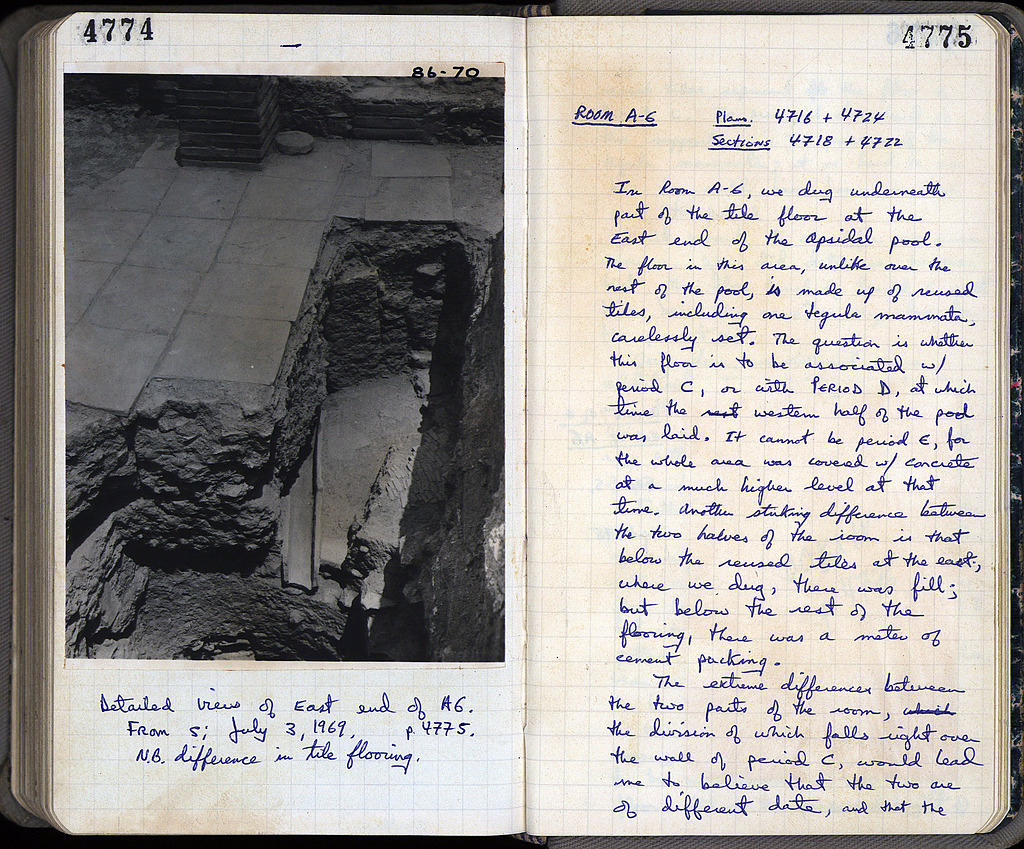 4774
86-70
Detailed view of East end of A6.
From S; July 3, 1969. p. 4775.
N.B. difference in tile flooring.
4775
ROOM A-6 Plans. 4716 + 4724
Sections 4718 + 4722
In Room A-6, we dug underneath
part of the tile floor at the
East end of the apsidal pool.
The floor in this area, unlike over the
rest of the pool, is made up of reused
tiles, including one tegula mammata,
carelessly set. The question is whether
this floor is to be associated w/
period C, or with PERIOD D, at which
time the rest western half of the pool
was laid. It cannot be period E, for
the whole area was covered w/ concrete
at a much higher level at that
time. Another striking difference between
the two halves of the room is that
below the reused tiles at the east,
where we dug, there was fill;
but below the rest of the
flooring, there was a meter of
cement packing.
The extreme differences between
the two parts of the room, which
the division of which falls right over
the wall of period C, would lead
me to believe that the two are
of different date, and that the